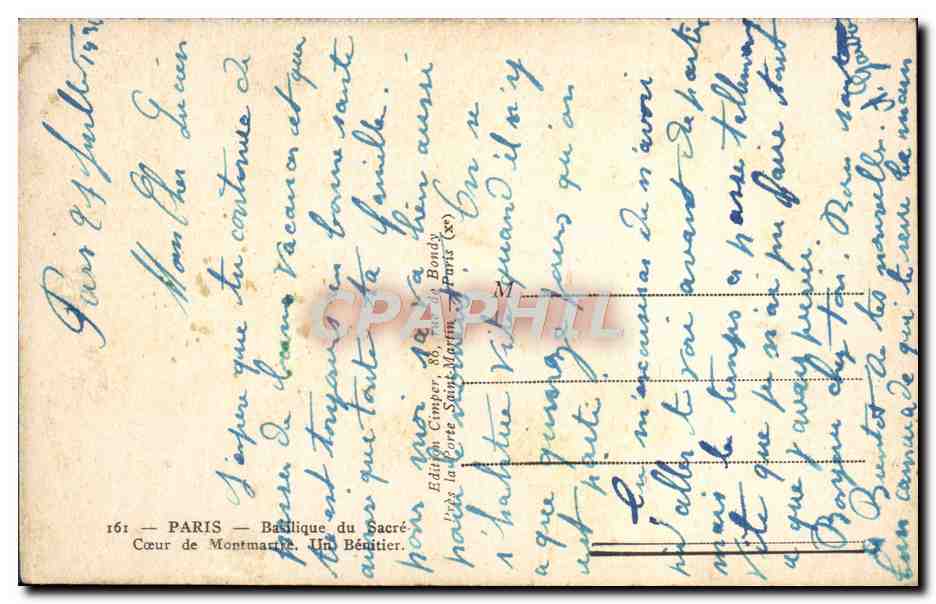 Paris 27 Juillet 193
Mon cher Lucien
J'espère que tu continue de
passer de bonnes vacances et que
tu est toujours en bonne santé
ainsi que toute ta famille.
pour moi sa va bien aussi
pour le moment. On se
s'habitue vite quand il n'y
a que quinze jours qu'on
est parti.
Tu m'excuseras de n'avoir
pu aller te voir avant de partir
mais le temps a passé tellement
vite que je n'ai pu faire tout
a que j'avais prévu.
Bonjour chez toi. Bonne santé
a Bientôt de tes nouvelles.
Ton camarade qui te serre la main
M
Edition Cimper, 86, rue de Bondy
Près la Porte Saint-Martin - Paris (xe)
161 — PARIS — Basilique du Sacré-
Cœur de Montmartre. Un Bénitier.
CPAPHIL